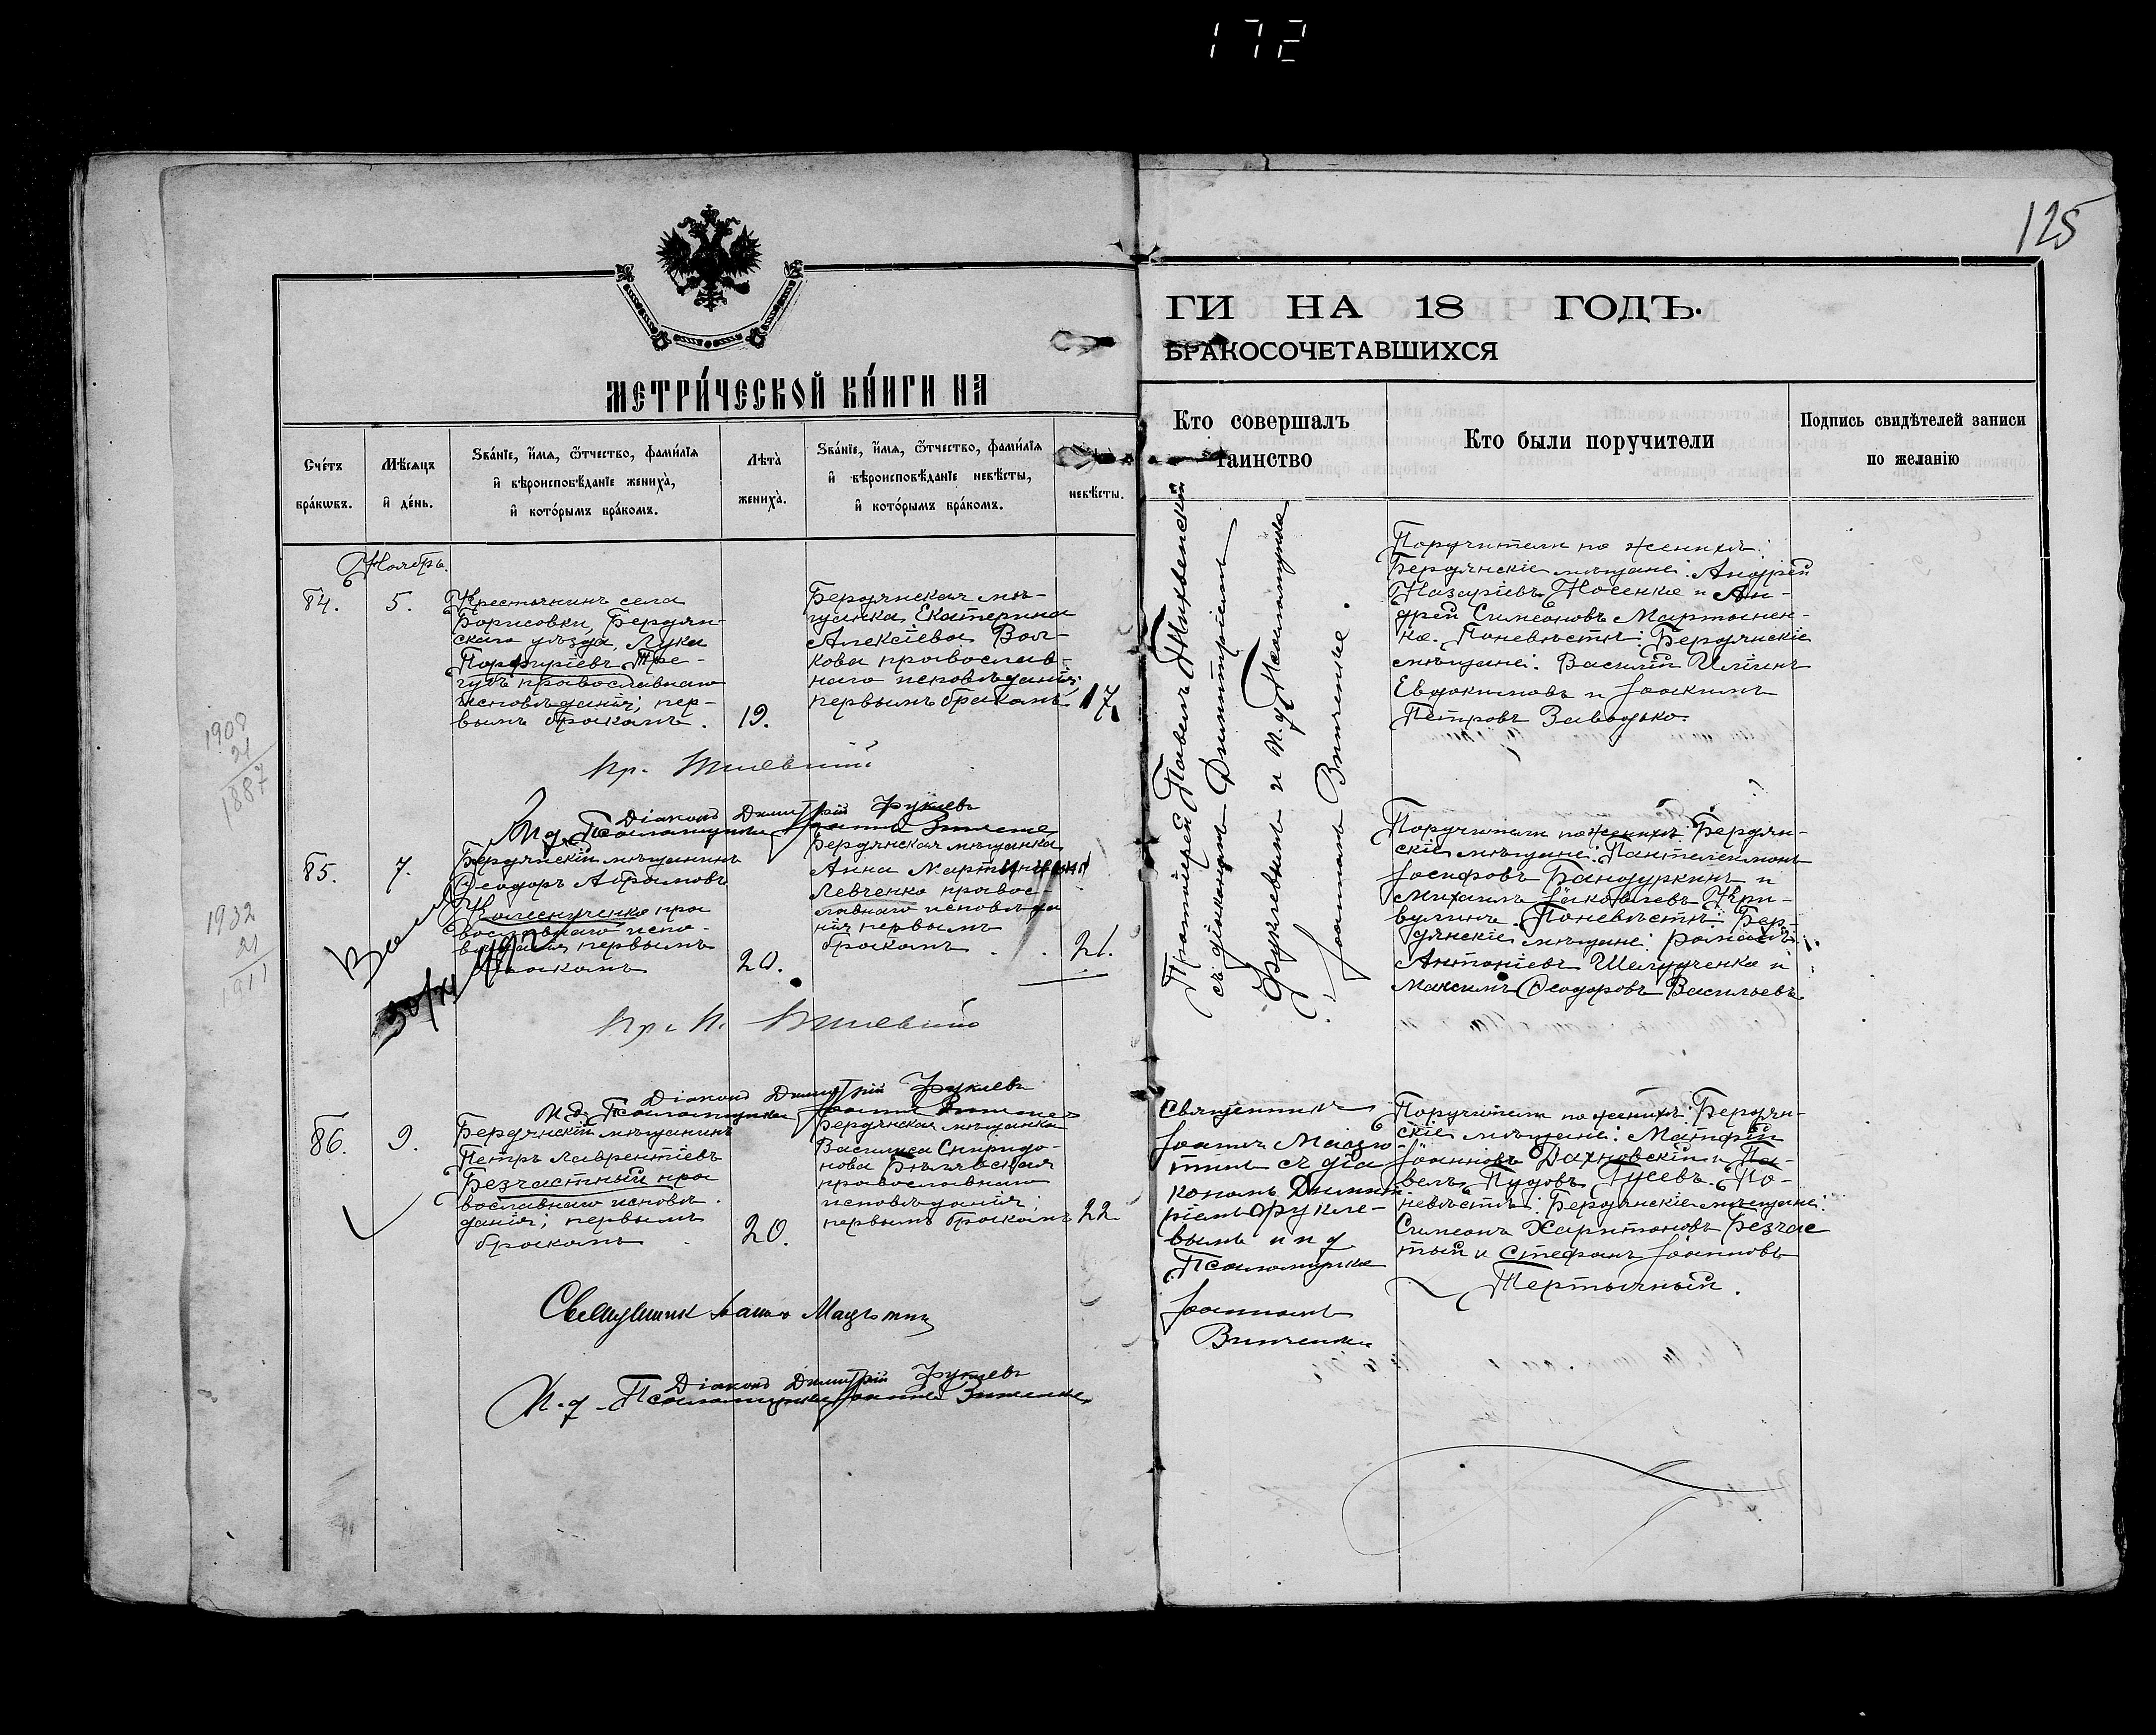 172
125
МЕТРИ́ЧЕСКОЙ КНИ́ГИ НА
ГИ НА 18 ГОДЪ.
БРАКОСОЧЕТАВШИХСЯ
Сче́тъ бра́кѡвъ.
Мѣ́сяцъ и де́нь.
Ѕва́нїе, и́мя, ѿтчество, фами́лїя
и вѣроисповѣ́данїе жениха̀,
и кото́рымъ бра́комъ.
Лѣта̀ жениха̀.
Ѕва́нїе, и́мя, ѿтчество, фами́лїя
и вѣроисповѣ́данїе невѣ́сты,
и кото́рымъ бра́комъ.
невѣ́сты.
Кто совершалъ
таинство
Кто были поручители
Подпись свидѣтелей записи
по желанію
Ноябрь.
84.
5.
Крестьянинъ села
Борисовки, Бердян-
скаго уѣзда, Лука
Порфиріевъ Тре-
губъ православнаго
исповѣданія; пер-
вымъ бракомъ.
19.
Бердянская мѣ-
щанка Екатерина
Алексіева Вол-
кова православ-
наго исповѣданія;
первымъ бракомъ
17.
Протоіерей Павелъ
съ діакономъ Димитріемъ
Фуклевымъ и и. д. Псаломщика
Іоанномъ Винченко.
Поручители по женихѣ:
Бердянскіе мѣщане: Андрей
Назаріевъ Носенко и Ан-
дрей Симеоновъ Мартынен-
ко. По невѣстѣ: Бердянскіе
мѣщане: Василій Иліинъ
Евдокимовъ и Іоакимъ
Петровъ Заводько.
Пр.
Діаконъ Димитрій Фуклевъ
И. д. Псаломщика Іоаннъ
85.
7.
Бердянскій мѣщанинъ
Ѳеодоръ Абрамовъ
Колесниченко пра
вославнаго испо-
вѣданія, первымъ
бракомъ
20.
Бердянская мѣщанка
Анна Мартиніева
Левченко правос-
лавнаго исповѣда
нія первымъ
бракомъ
21.
Поручители по женихѣ: Бердян-
скіе мѣщане: Пантелеимонъ
Іосифовъ Бандуркинъ и
Михаилъ Іаковлевъ Кри-
вулинъ. По невѣстѣ: Бер-
дянскіе мѣщане:
Антоніевъ Шелудченко и
Максимъ Ѳеодоровъ Васильевъ.
Пр. П.
Діаконъ Димитрій Фуклевъ
И. д. Псаломщика Іоаннъ
86.
9.
Бердянскій мѣщанинъ
Петръ Лаврентіевъ
Безчастный пра
вославнаго исповѣ
данія; первымъ
бракомъ
20.
Бердянская мѣщанка
Василиса Спиридо-
нова Бѣлявская
православнаго
исповѣданія;
первымъ бракомъ
22.
Священникъ
Іоаннъ
съ діа
кономъ Димит
ріемъ Фукле-
вымъ и и д
Псаломщика
Іоанномъ
Винченко
Поручители по женихѣ: Бердян-
скіе мѣщане: Матфей
Іоанновъ Дахновскій и Па-
велъ Пудовъ Гусевъ. По-
невѣстѣ: Бердянскіе мѣщане:
Симеонъ Харитоновъ Безчас
тный и Стефанъ Іоанновъ
Тертычный.
Священник
Діаконъ Димитрій Фуклевъ
И. д. Псаломщика Іоаннъ Винченко
1908
21
1887
1932
21
1911